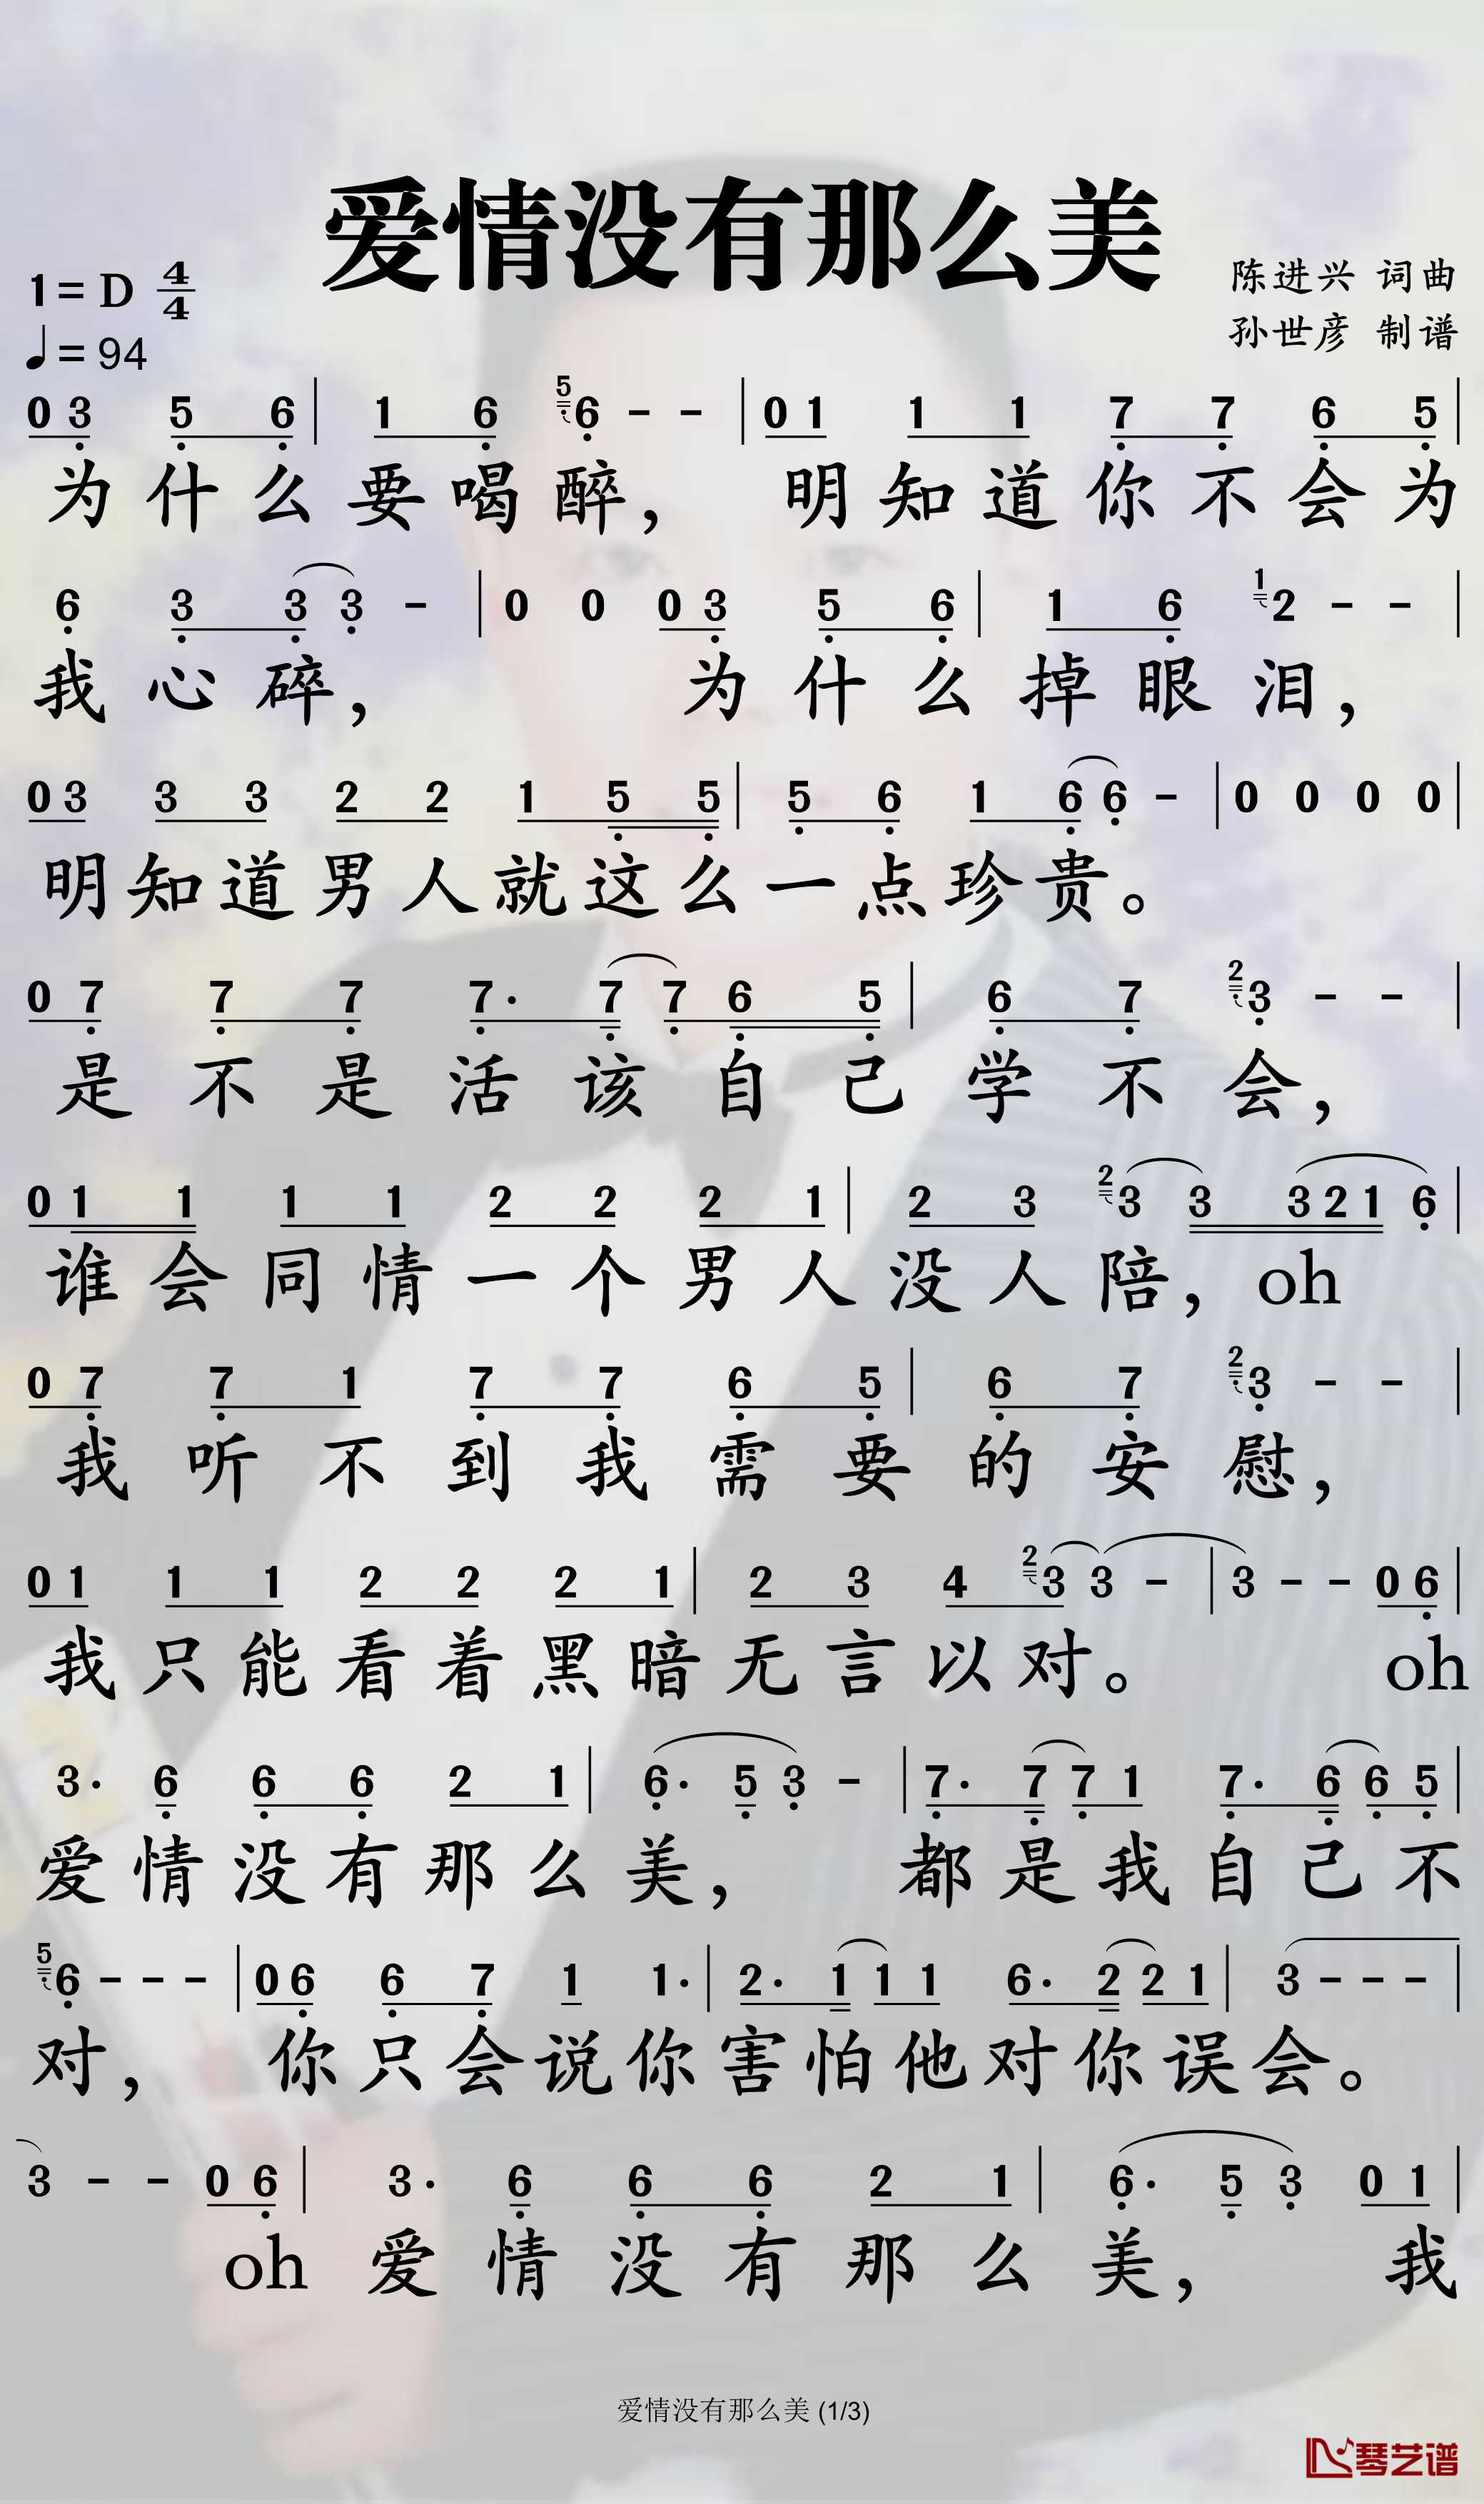 爱情没有那么美
1= D 4/4
陈进兴 词曲
♩= 94
孙世彦 制谱
0 3 5 6 | 1 6 5 6 - - | 0 1 1 1 7 7 6 5 |
为什么要喝醉， 明知道你不会为
6 3 3 3 - | 0 0 0 3 5 6 | 1 6 1 2 - - |
我心碎， 为什么掉眼泪，
0 3 3 3 2 2 1 5 5 | 5 6 1 6 6 - | 0 0 0 0 |
明知道男人就这么一点珍贵。
0 7 7 7 7· 7 7 6 5 | 6 7 2 3 - - |
是不是活该自己学不会，
0 1 1 1 1 2 2 2 1 | 2 3 2 3 3 3 2 1 6 |
谁会同情一个男人没人陪，oh
0 7 7 1 7 7 6 5 | 6 7 2 3 - - |
我听不到我需要的安慰，
0 1 1 1 2 2 2 1 | 2 3 4 2 3 3 - | 3 - - 0 6 |
我只能看着黑暗无言以对。 oh
3· 6 6 6 2 1 | 6· 5 3 - | 7· 7 7 1 7· 6 6 5 |
爱情没有那么美， 都是我自己不
5 6 - - - | 0 6 6 7 1 1· | 2· 1 1 1 6· 2 2 1 | 3 - - - |
对， 你只会说你害怕他对你误会。
3 - - 0 6 | 3· 6 6 6 2 1 | 6· 5 3 0 1 |
oh 爱情没有那么美， 我
爱情没有那么美 (1/3)
琴艺谱